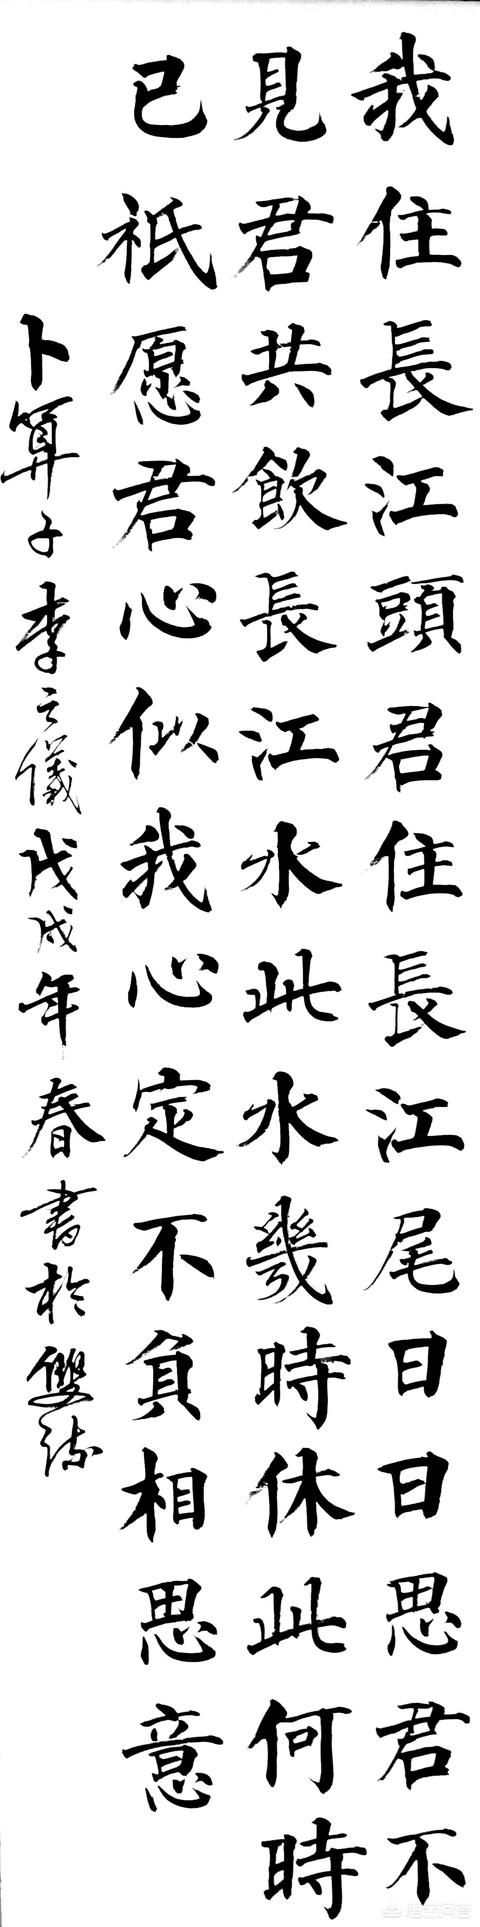 我住長江頭君住長江尾日日思君不
見君共飲長江水此水幾時休此何時
已祇愿君心似我心定不負相思意
卜算子李之儀戊戌年春書於雙
悟空问答